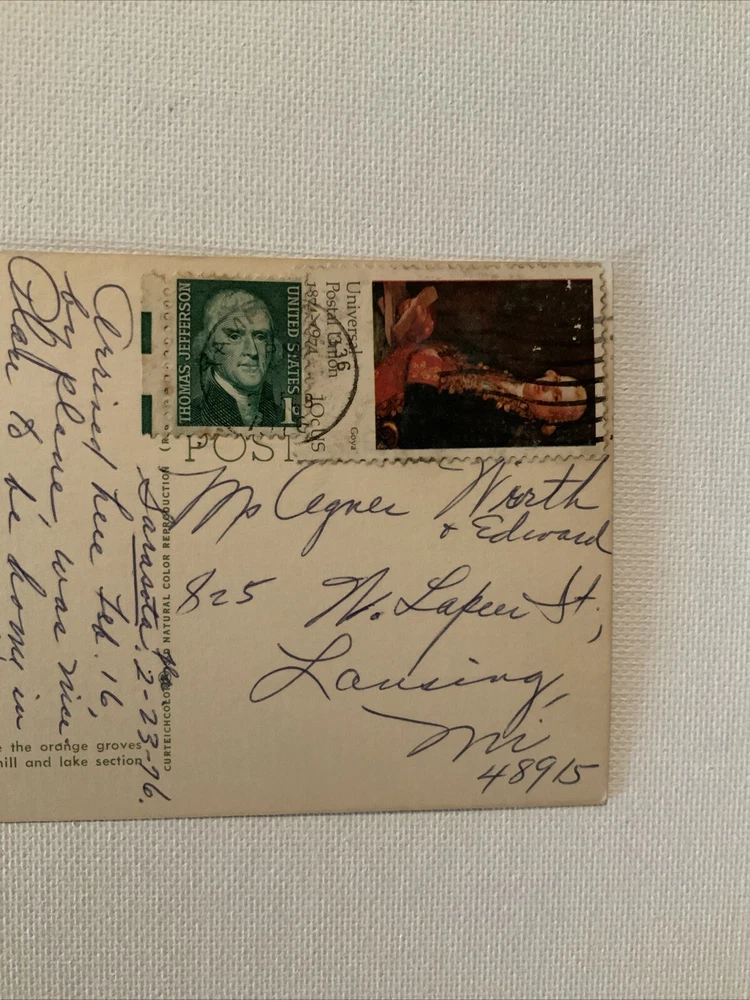 Sarasota, 2-23-76.
Arrived here Feb. 16,
by plane, was nice
Plan to be home in
the orange groves
hill and lake section
CURTEICHCOLOR NATURAL COLOR REPRODUCTION
POST
THOMAS JEFFERSON
UNITED STATES
1¢
Universal
Postal Union
1874-1974
10c US
Goya
Agnes Worth
& Edward
825 N. Lapeer St.,
Lansing,
Mi
48915